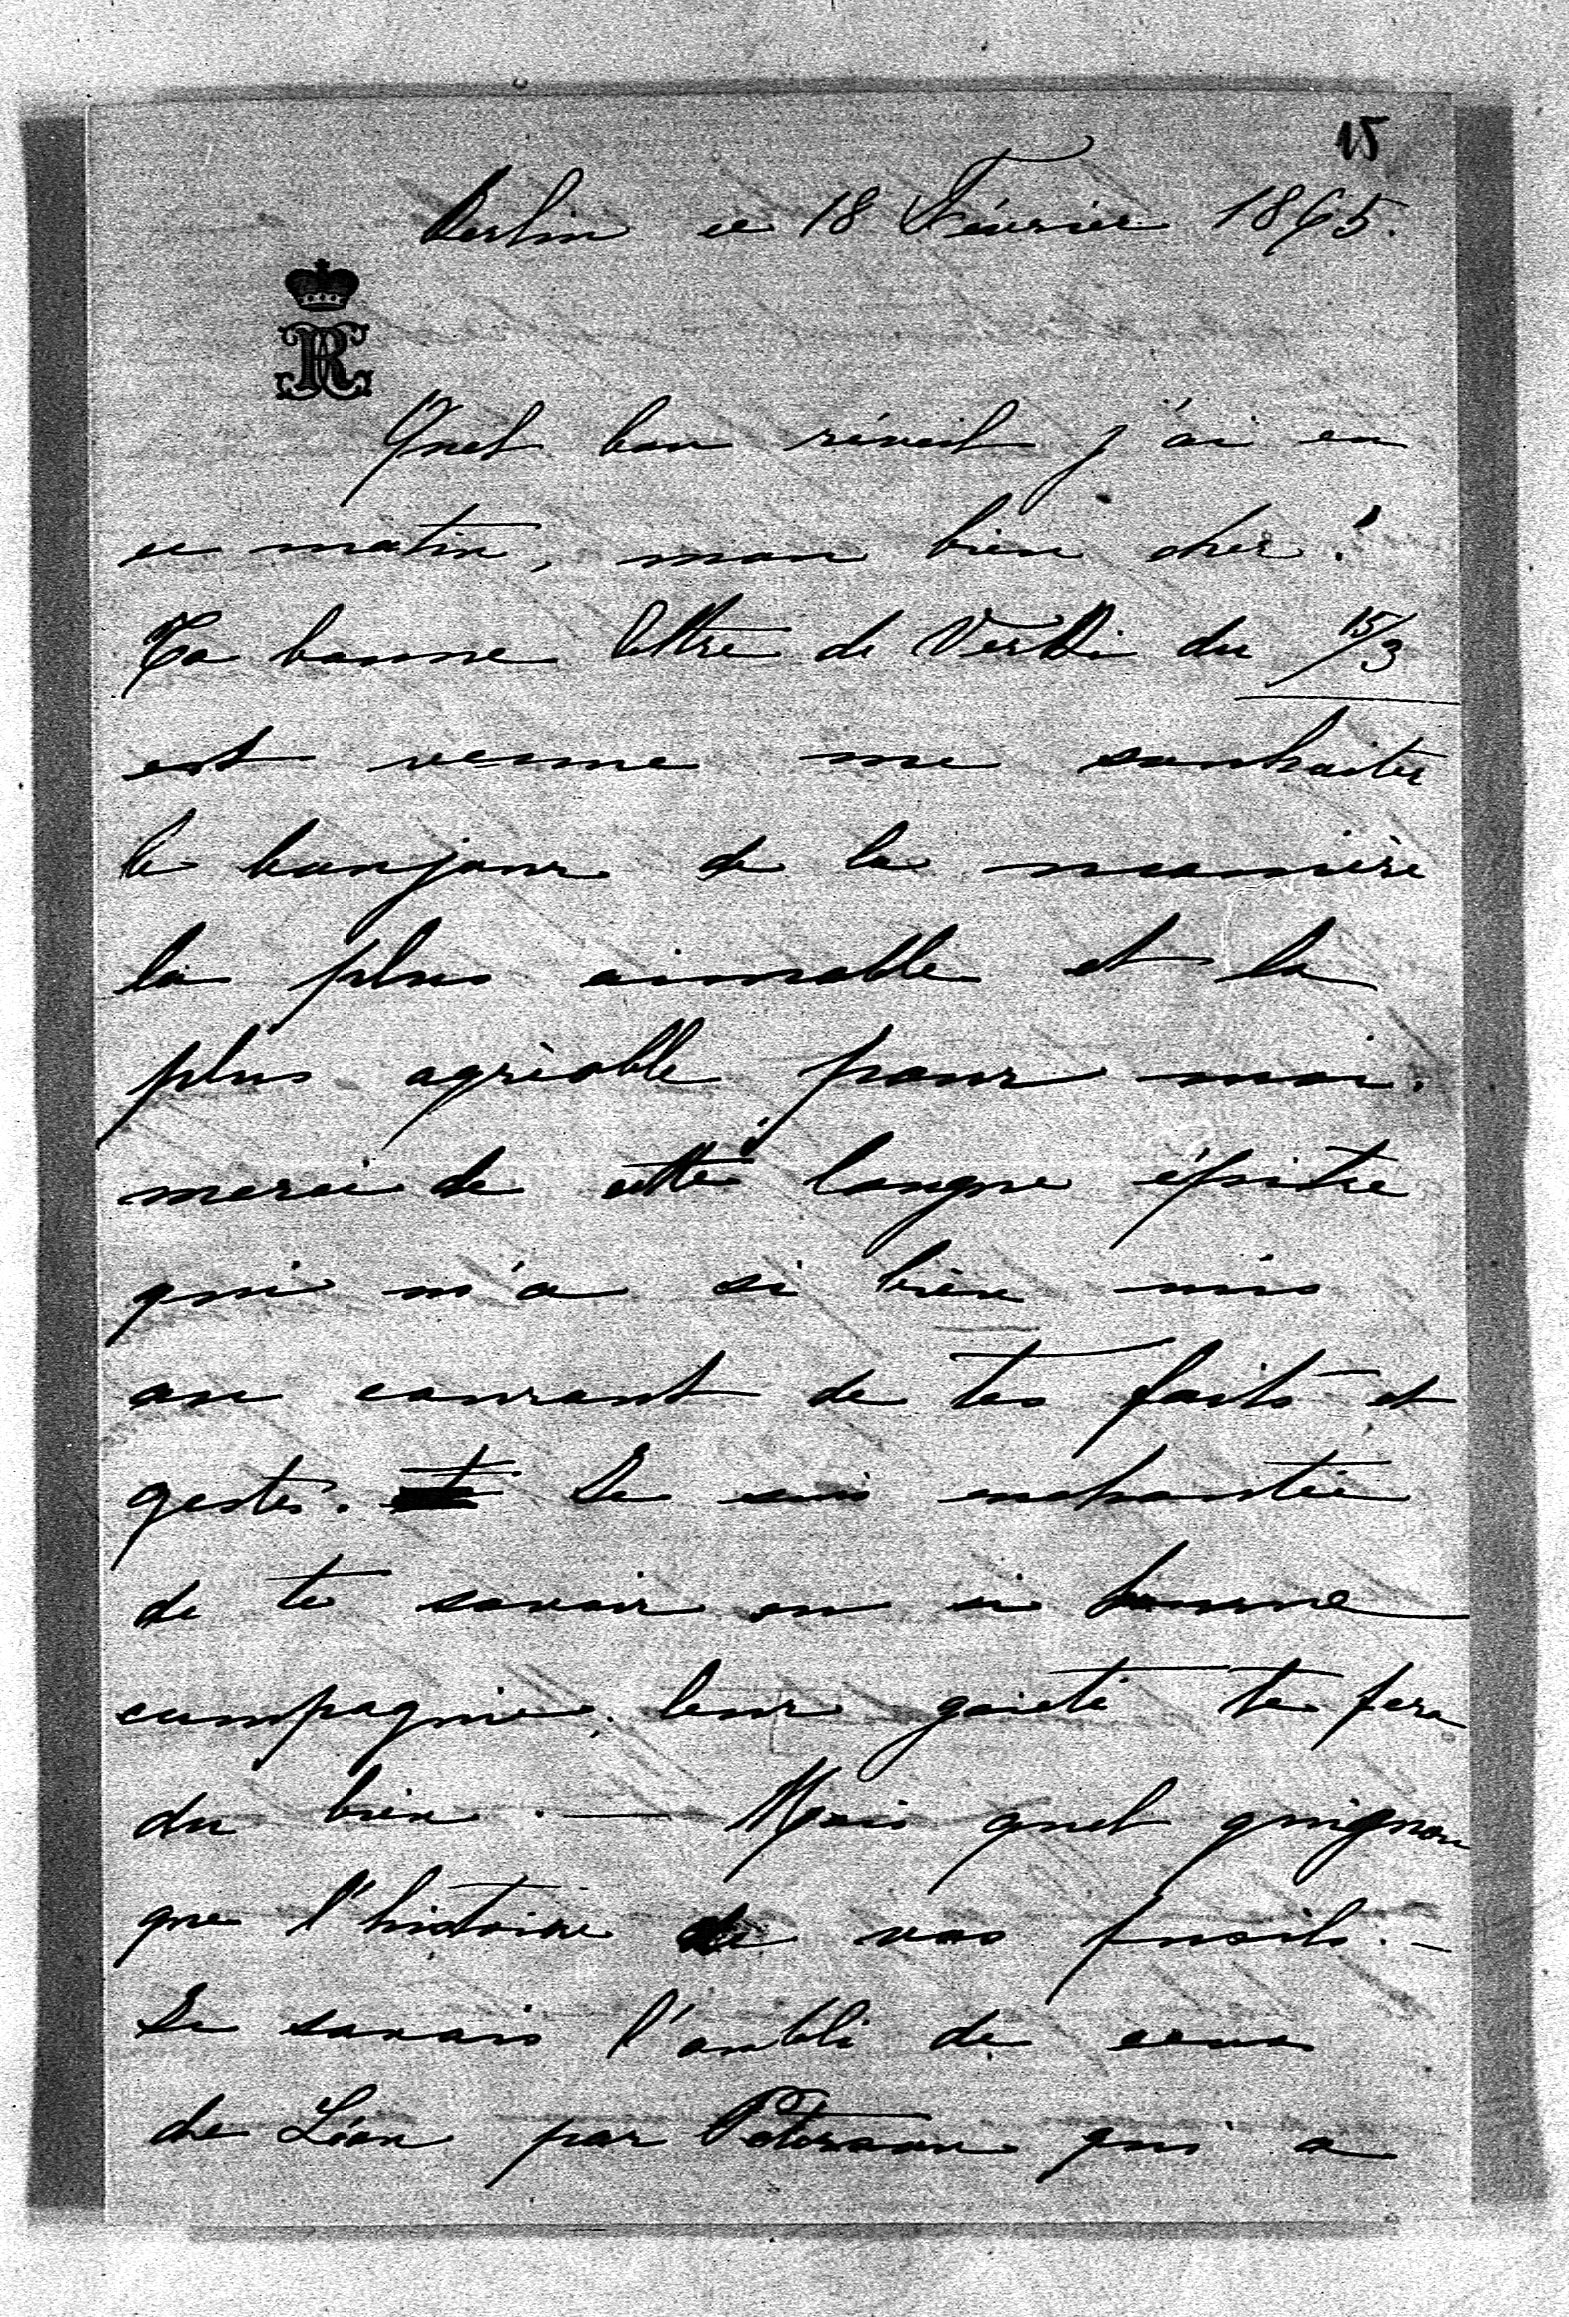 15
Berlin ce 18 Février 1865.
R
Quel bon réveil j'ai eu
ce matin, mon bien cher!
Ta bonne lettre de Verki du 15/3
est venue me souhaiter
le bonjour de la manière
la plus aimable et la
plus agréable pour moi.
merci de cette longue épitre
qui m'a si bien mis
au courant de tes faits et
gestes. Je suis enchantée
de te savoir en si bonne
compagnie; leur gaieté te fera
du bien. — Mais quel guignon
que l'histoire de vos fusils. —
Je savais l'oubli de ceux
de Léon par Peterson qui a